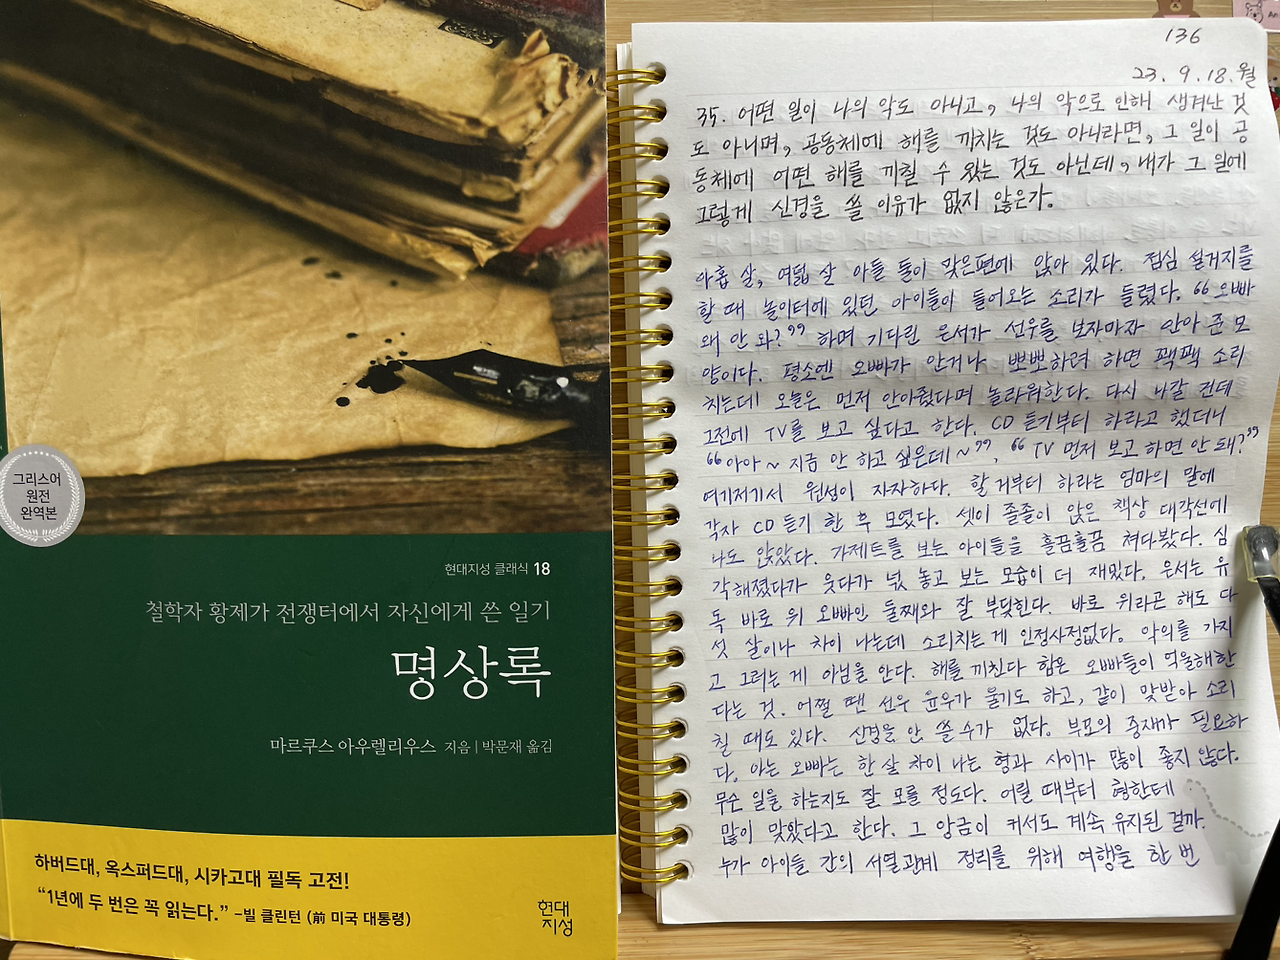 그리스어
원전
완역본
현대지성 클래식 18
철학자 황제가 전쟁터에서 자신에게 쓴 일기
명상록
마르쿠스 아우렐리우스 지음 | 박문재 옮김
하버드대, 옥스퍼드대, 시카고대 필독 고전!
“1년에 두 번은 꼭 읽는다.” -빌 클린턴 (前 미국 대통령)
현대
지성
136
23. 9. 18. 월
35. 어떤 일이 나의 악도 아니고, 나의 악으로 인해 생겨난 것
도 아니며, 공동체에 해를 끼치는 것도 아니라면, 그 일이 공
동체에 어떤 해를 끼칠 수 있는 것도 아닌데, 내가 그 일에
그렇게 신경을 쓸 이유가 없지 않은가.
아홉 살, 여덟 살 아들 둘이 맞은편에 앉아 있다. 점심 설거지를
할 때 놀이터에 있던 아이들이 들어오는 소리가 들렸다. “오빠
왜 안 와?” 하며 기다린 은서가 선우를 보자마자 안아 준 모
양이다. 평소엔 오빠가 안거나 뽀뽀하려 하면 꽥꽥 소리
치는데 오늘은 먼저 안아줬다며 놀라워한다. 다시 나갈 건데
그전에 TV를 보고 싶다고 한다. CD 듣기부터 하라고 했더니
“아아~ 지금 안 하고 싶은데~”, “TV 먼저 보고 하면 안 돼?”
여기저기서 원성이 자자하다. 할 거부터 하라는 엄마의 말에
각자 CD 듣기 한 후 모였다. 셋이 졸졸이 앉은 책상 대각선에
나도 앉았다. 가제트를 보는 아이들을 흘끔흘끔 쳐다봤다. 심
각해졌다가 웃다가 넋 놓고 보는 모습이 더 재밌다. 은서는 유
독 바로 위 오빠인 둘째와 잘 부딪힌다. 바로 위라곤 해도 다
섯 살이나 차이 나는데 소리치는 게 인정사정없다. 악의를 가지
고 그러는 게 아님을 안다. 해를 끼친다 함은 오빠들이 억울해한
다는 것. 어쩔 땐 선우 윤우가 울기도 하고, 같이 맞받아 소리
칠 때도 있다. 신경을 안 쓸 수가 없다. 부모의 중재가 필요하
다. 아는 오빠는 한 살 차이 나는 형과 사이가 많이 좋지 않다.
무슨 일을 하는지도 잘 모를 정도다. 어릴 때부터 형한테
많이 맞았다고 한다. 그 앙금이 커서도 계속 유지된 걸까.
누가 아이들 간의 서열관계 정리를 위해 여행을 한 번